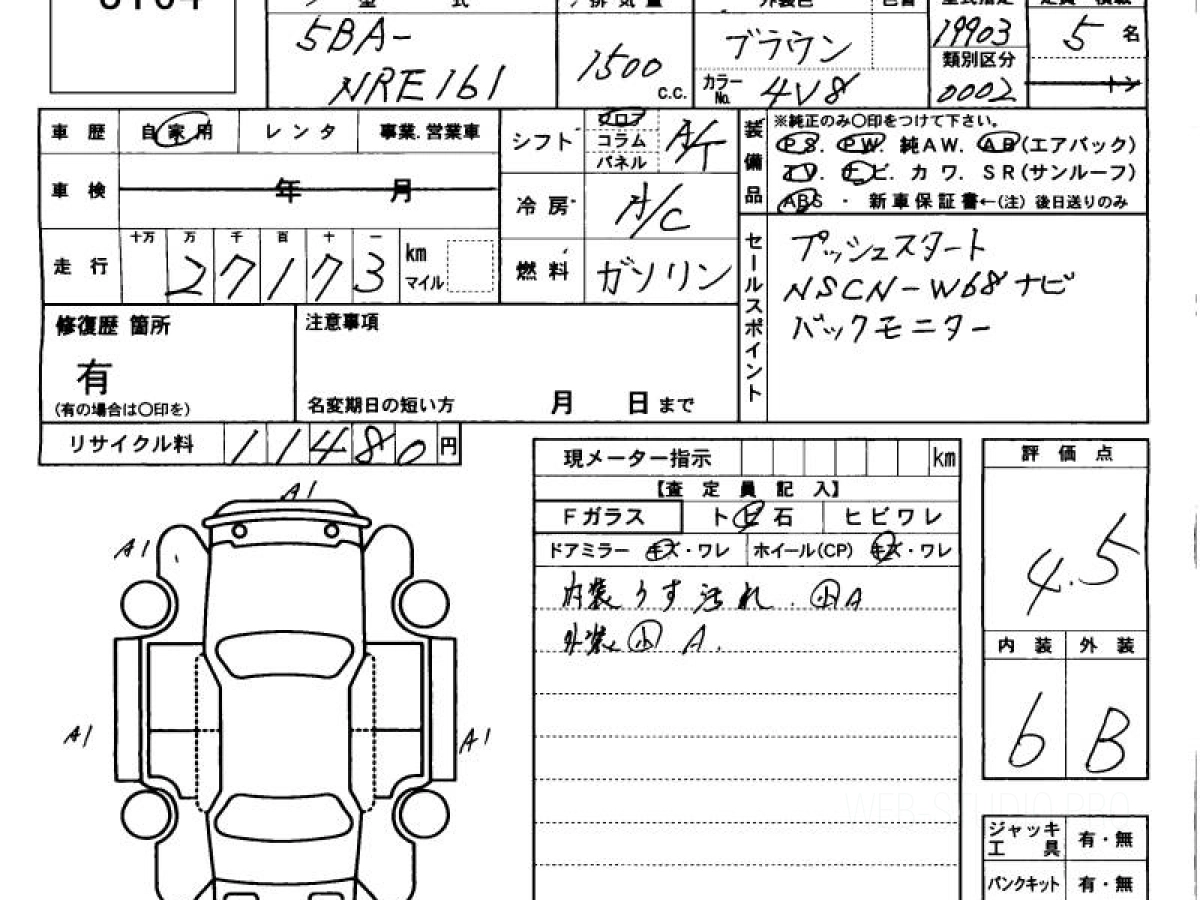 5BA-
NRE161
1500
C.C.
ブラウン
カラー No. 4V8
19903
類別区分
0002
5 名
トン
車歴 自家用 レンタ 事業.営業車
車検 年 月
走行 十万 万 千 百 十 一
27173 km マイル
シフト フロア コラム パネル A/T
冷房 A/C
燃料 ガソリン
装備品
※純正のみ〇印をつけて下さい。
PS. PW. 純AW. AB(エアバック)
TV. ナビ. カワ. SR(サンルーフ)
ABS ・ 新車保証書←(注) 後日送りのみ
セールスポイント
プッシュスタート
NSCN-W68ナビ
バックモニター
修復歴 箇所
有
(有の場合は〇印を)
注意事項
名変期日の短い方 月 日 まで
リサイクル料 11480 円
現メーター指示 km
【査定員記入】
Fガラス トビ石 ヒビワレ
ドアミラー キズ・ワレ ホイール(CP) キズ・ワレ
内装うす汚れ. 小A
外装 小 A.
評価点
4.5
内装 外装
6 B
A1
A1
A1
A1
ジャッキ 工具 有・無
パンクキット 有・無
WEB STUDIO PRO